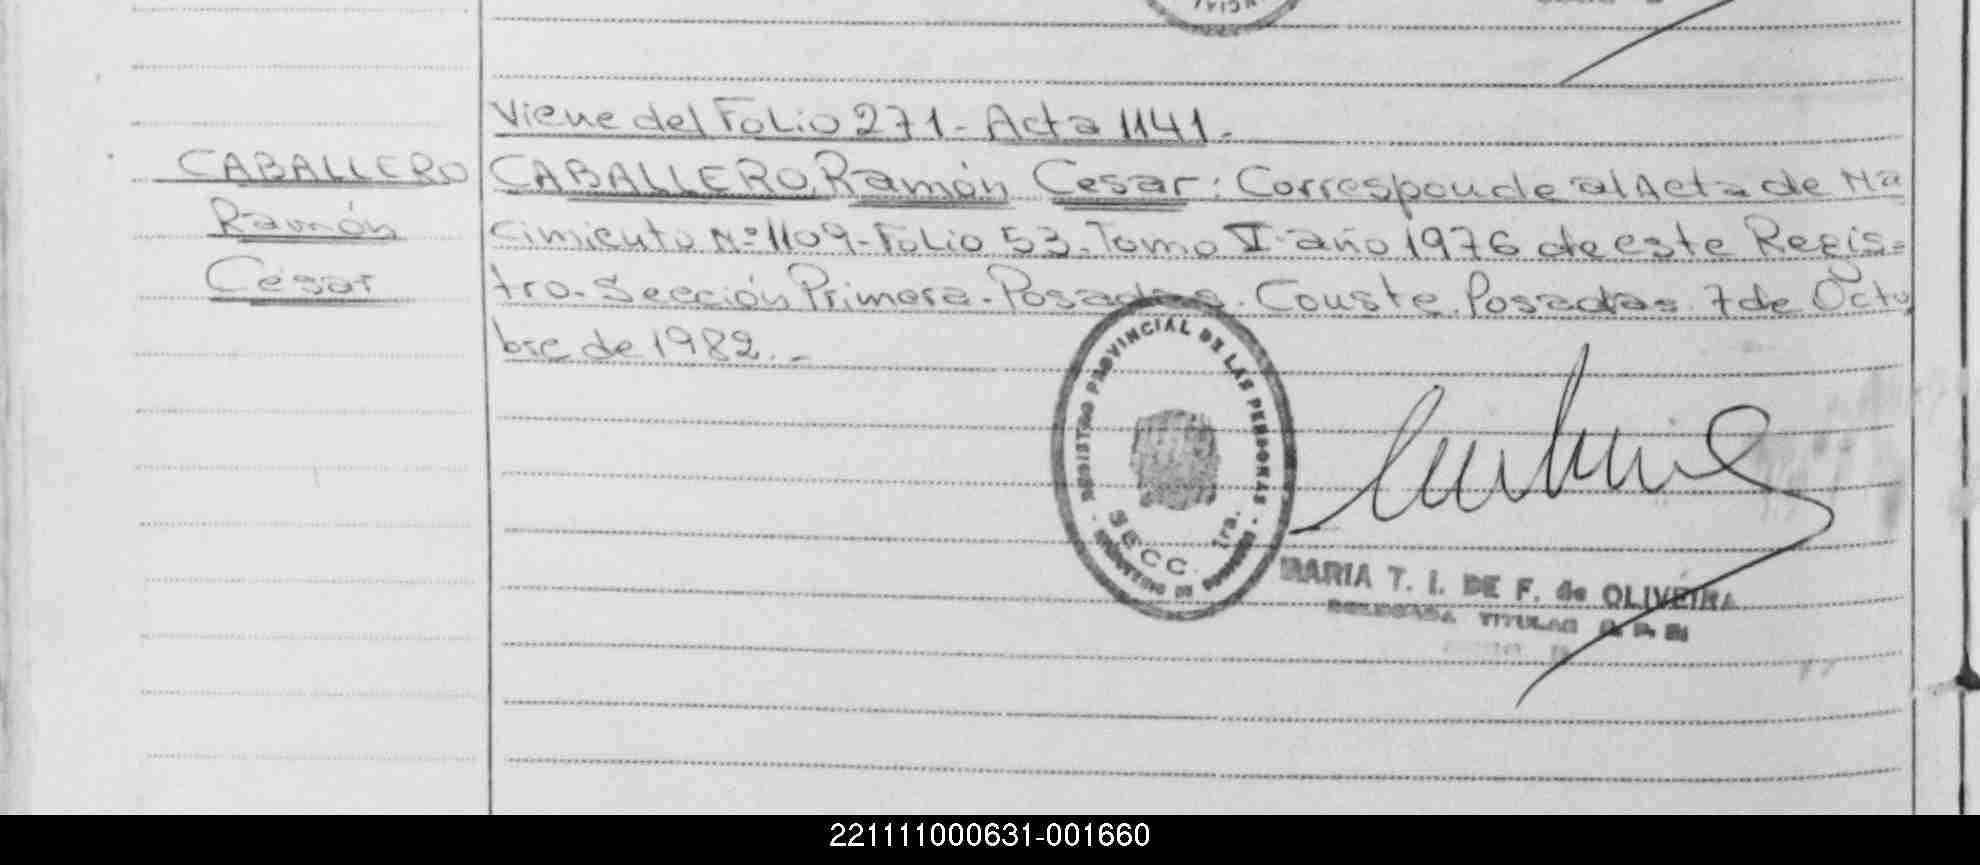 Viene del Folio 271 - Acta 1141 -
CABALLERO
Ramón
Cesar
CABALLERO, Ramón Cesar: Corresponde al Acta de Na
cimiento Nº 1109 - Folio 53 - Tomo VI año 1976 de este Regis=
tro. Sección Primera - Posadas. Conste. Posadas. 7 de Octu
bre de 1982. -
REGISTRO PROVINCIAL DE LAS PERSONAS
SECC. 1ra.
MINISTERIO DE GOBIERNO
MARIA T. I. DE F. de OLIVEIRA
DELEGADA TITULAR
221111000631-001660